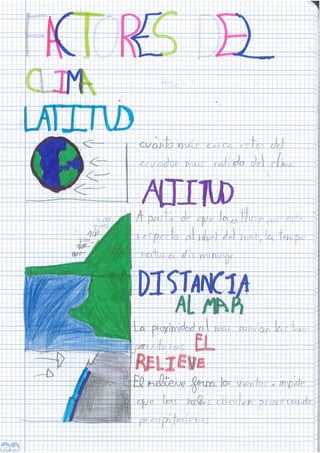 FACTORES DEL
CLIMA
LATITUD
cuanto mas cerca este del
ecuador mas calido del clima
ALTITUD
A partir de que la altura
respecto al nivel del mar, la tempe
ratura disminuye
DISTANCIA
AL MAR
La proximidad al mar suaviza las tem
peraturas
EL
RELIEVE
El relieve frena los vientos e impide
que las nubes circulen provocando
precipitaciones